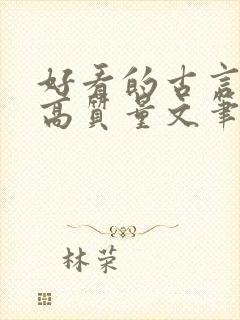 好看的古言
高质量文笔
林荣